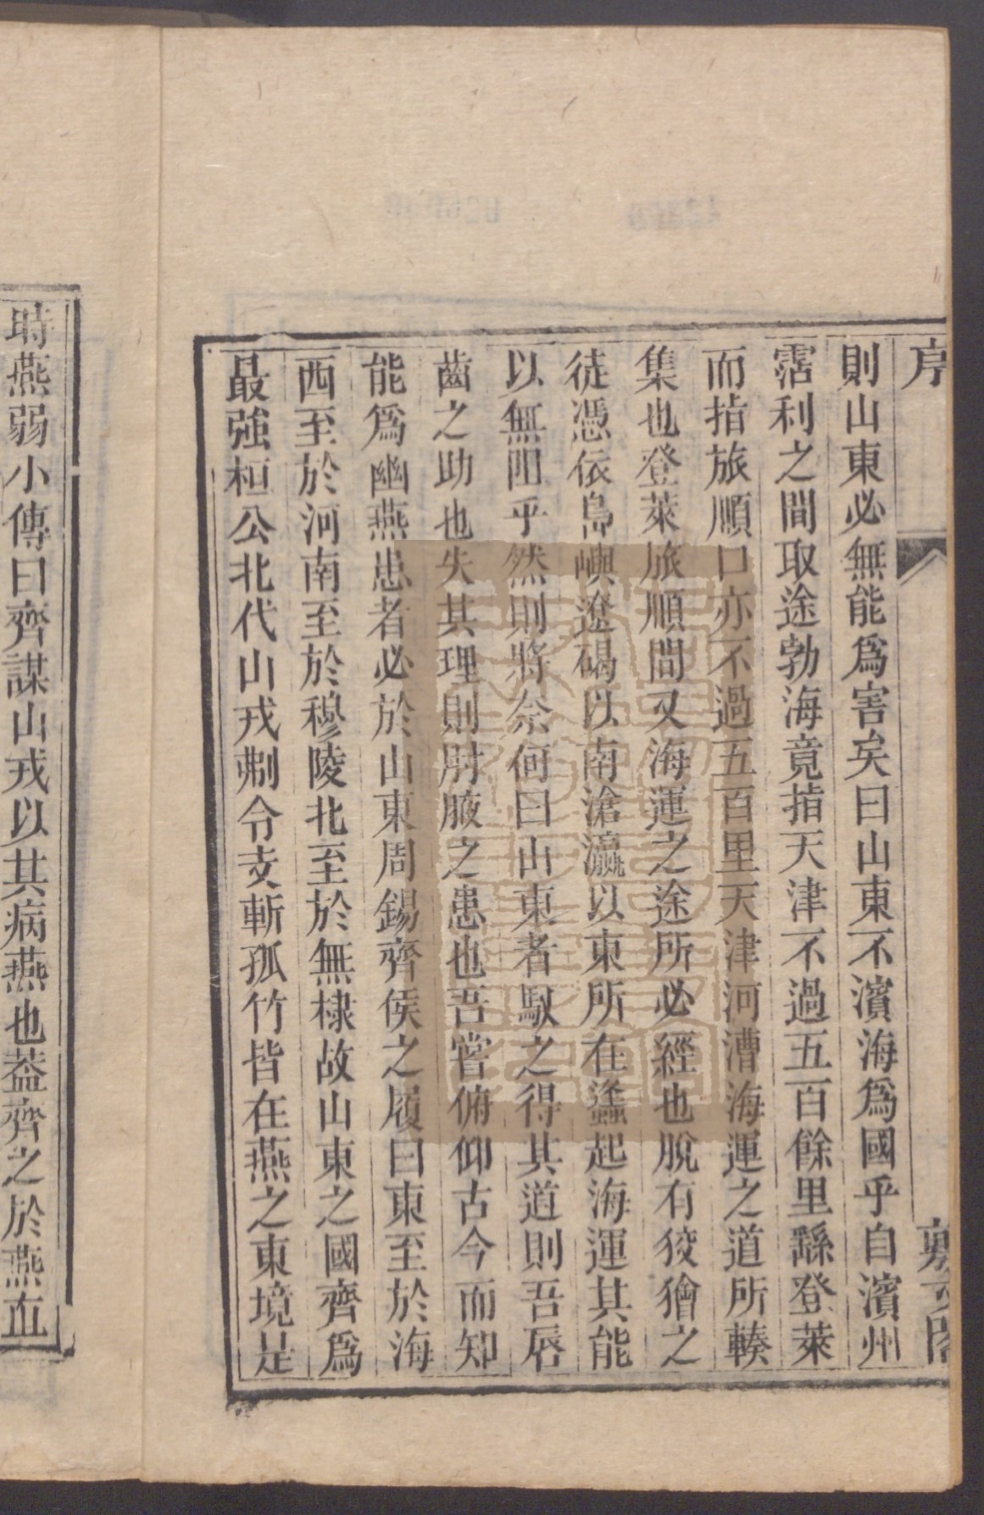 序
則山東必無能爲害矣曰山東不濱海爲國乎自濱州
霑利之間取途勃海竟指天津不過五百餘里繇登萊
而指旅順口亦不過五百里天津河漕海運之道所輳
集也登萊旅順間又海運之途所必經也脫有狡獪之
徒憑依島嶼遼碣以南滄瀛以東所在蠭起海運其能
以無阻乎然則將奈何曰山東者馭之得其道則吾唇
齒之助也失其理則肘腋之患也吾嘗俯仰古今而知
能爲幽燕患者必於山東周錫齊侯之履曰東至於海
西至於河南至於穆陵北至於無棣故山東之國齊爲
最強桓公北伐山戎刜令支斬孤竹皆在燕之東境是
時燕弱小傳曰齊謀山戎以其病燕也葢齊之於燕血